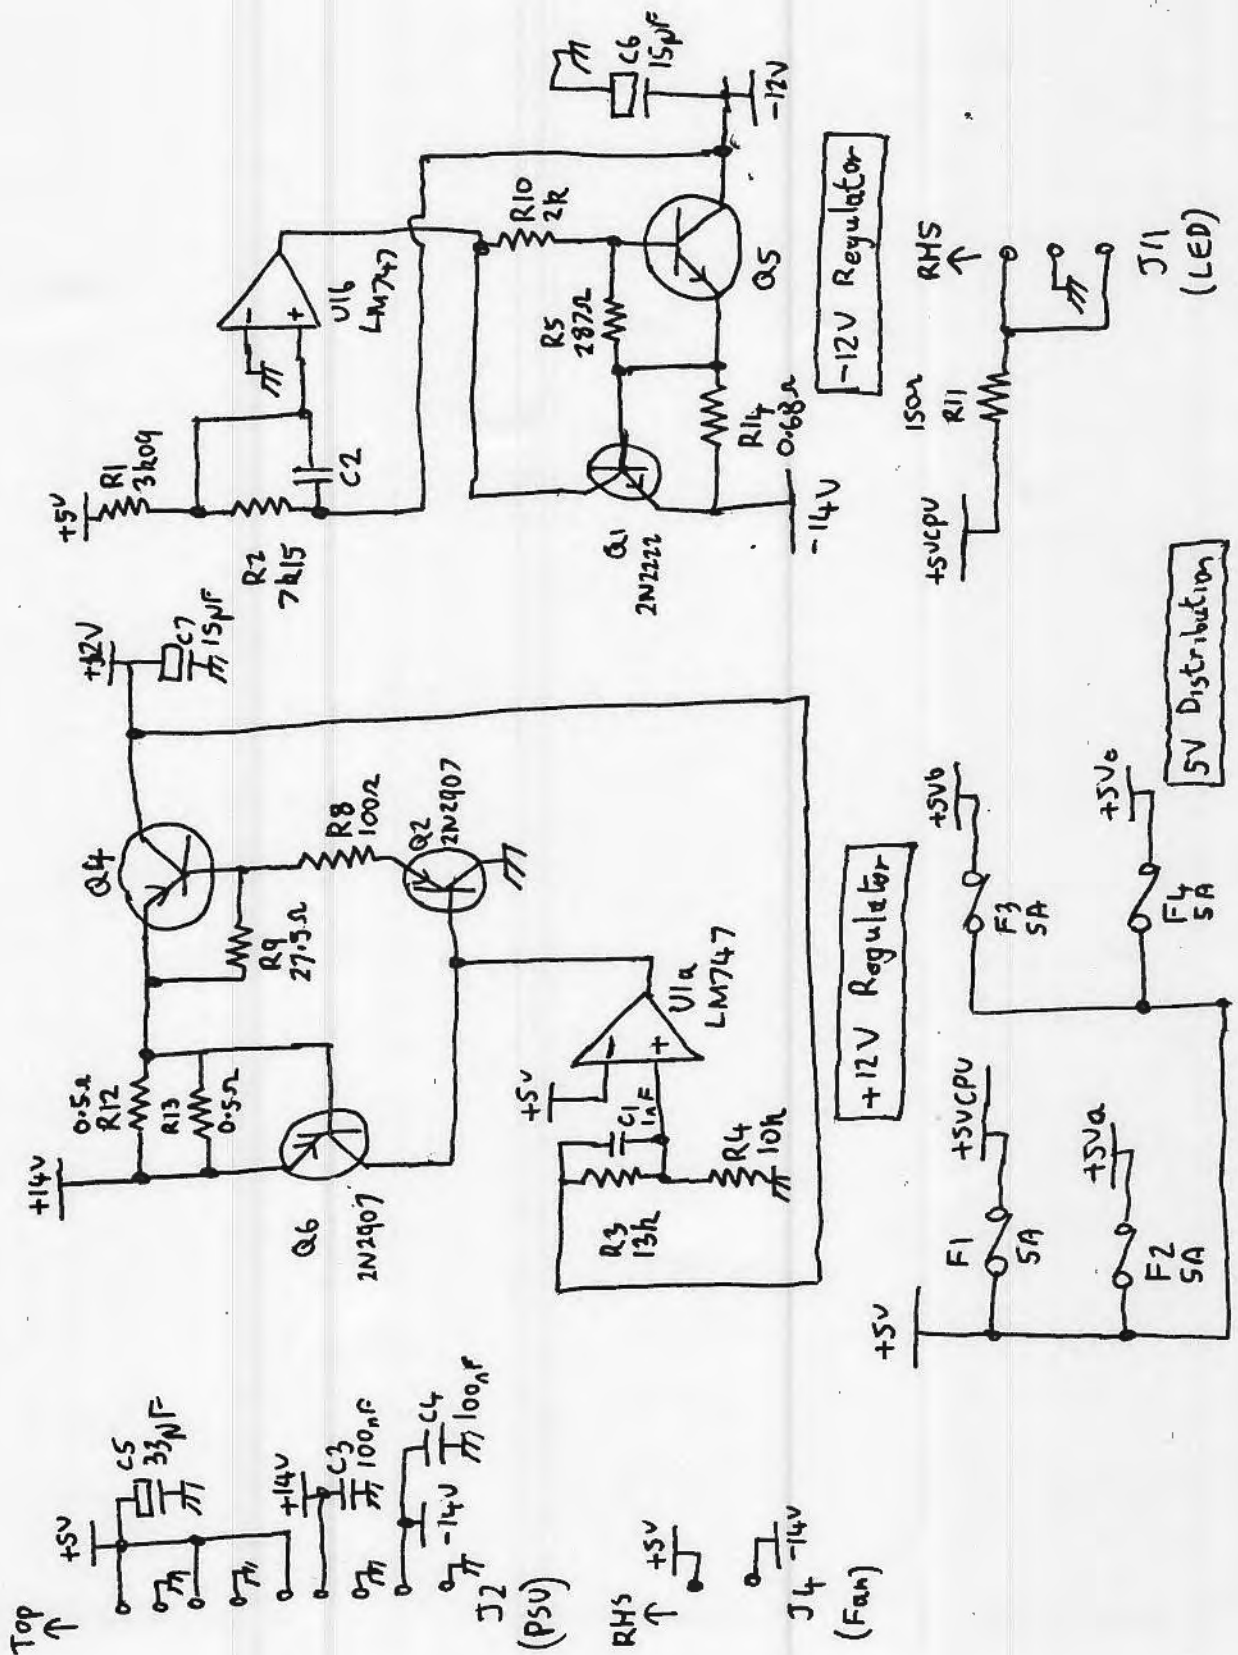 Top
↑
+5V
C5
33µF
+14V
C3
100nF
-14V
C4
100nF
J2
(PSU)
RHS
↑
+5V
-14V
J4
(Fan)
+14V
0.5Ω
R12
R13
0.5Ω
Q6
2N2907
Q4
R9
27.5Ω
R8
100Ω
Q2
2N2907
+12V
C7
15µF
+5V
-
+
U1a
LM747
C1
1nF
R3
13k
R4
10k
+12V Regulator
+5V
R1
3k09
R2
7k15
C2
-
+
U1b
LM747
R10
2k
R5
287Ω
Q5
Q1
2N2222
R14
0.68Ω
-14V
C6
15µF
-12V
-12V Regulator
+5V
F1
5A
+5VCPU
F2
5A
+5Va
F3
5A
+5Vb
F4
5A
+5Vc
5V Distribution
+5VCPU
150Ω
R11
RHS
↑
J11
(LED)